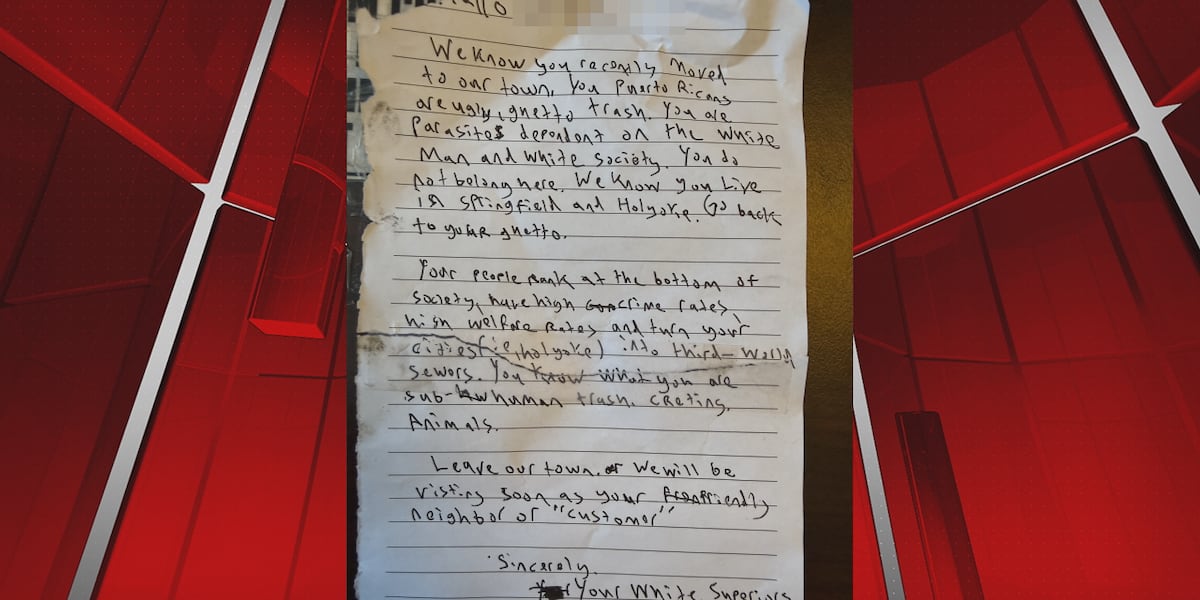 We Know you recently moved
to our town, You Puerto Ricans
are ugly, ghetto trash. You are
Parasites dependent on the white
Man and white society. You do
not belong here. We Know you Live
in Springfield and Holyoke. Go back
to your ghetto.
Your people rank at the bottom of
society, have high crime rates,
high welfare rates and turn your
cities (ie, holyoke) into third-world
sewers. You know what you are
sub-human trash. Cretins.
Animals.
Leave our town. or We will be
visting soon as your friendly
neighbor or "customer"
Sincerely
Your White Superiors